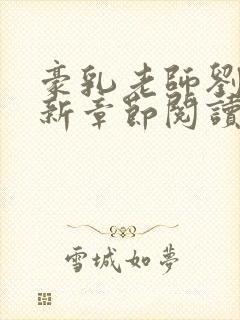 豪乳老師劉
新章節閱讀
雪城如夢